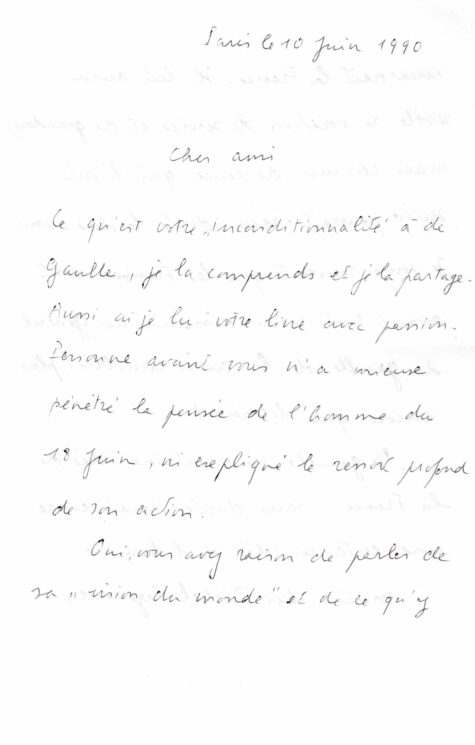 Paris le 10 Juin 1990
Cher ami
Ce qu'est votre "inconditionnalité" à de
Gaulle, je la comprends et je la partage.
Aussi ai je lu votre livre avec passion.
Personne avant vous n'a mieux
pénétré la pensée de l'homme du
18 Juin, ni expliqué le ressort profond
de son action.
Oui, vous avez raison de parler de
sa "vision du monde" et de ce qu'y